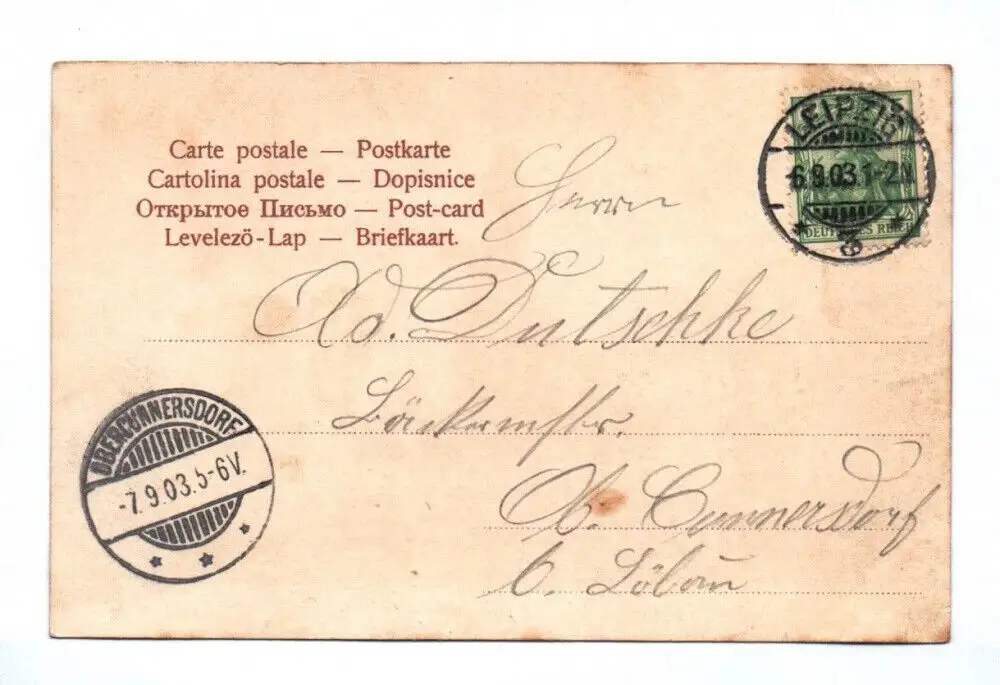 Carte postale — Postkarte
Cartolina postale — Dopisnice
Открытое Письмо — Post-card
Levelező-Lap — Briefkaart.
LEIPZIG
6.9.03.1-2N.
3
DEUTSCHES REICH
Herrn
Ad. Dutschke
Bäckermstr.
Ob. Cunnersdorf
b. Löbau
OBERCUNNERSDORF
-7.9.03.5-6V.